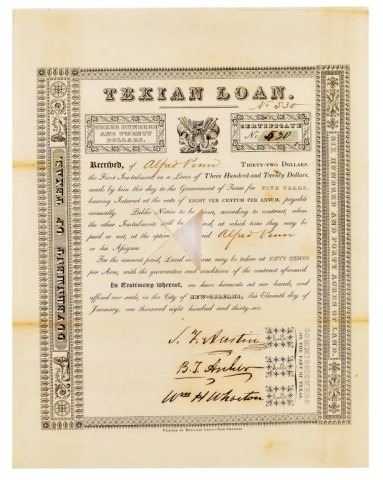 TEXIAN LOAN.
No 530
THREE HUNDRED
AND TWENTY
DOLLARS.
CERTIFICATE
No. 530
Received, of Alfred Penn THIRTY-TWO DOLLARS,
the First Instalment on a Loan of Three Hundred and Twenty Dollars,
made by him this day to the Government of Texas for FIVE YEARS,
bearing Interest at the rate of EIGHT PER CENTUM PER ANNUM, payable
annually. Public Notice to be given, according to contract, when
the other Instalments will be
at which time they may be
paid or not, at the option
said Alfred Penn
or his Assigns.
For the amount paid, Land
may be taken at FIFTY CENTS
per Acre, with the guarantees and conditions of the contract aforesaid.
In Testimony whereof, we have hereunto set our hands, and
affixed our seals, in the City of NEW-ORLEANS, this Eleventh day of
January, one thousand eight hundred and thirty-six.
S. F. Austin
B. T. Archer
Wm H Wharton
COMMISSIONERS
ON THE PART OF TEXAS.
GOVERNMENT OF TEXAS.
SIX HUNDRED AND FORTY ACRES OF LAND.